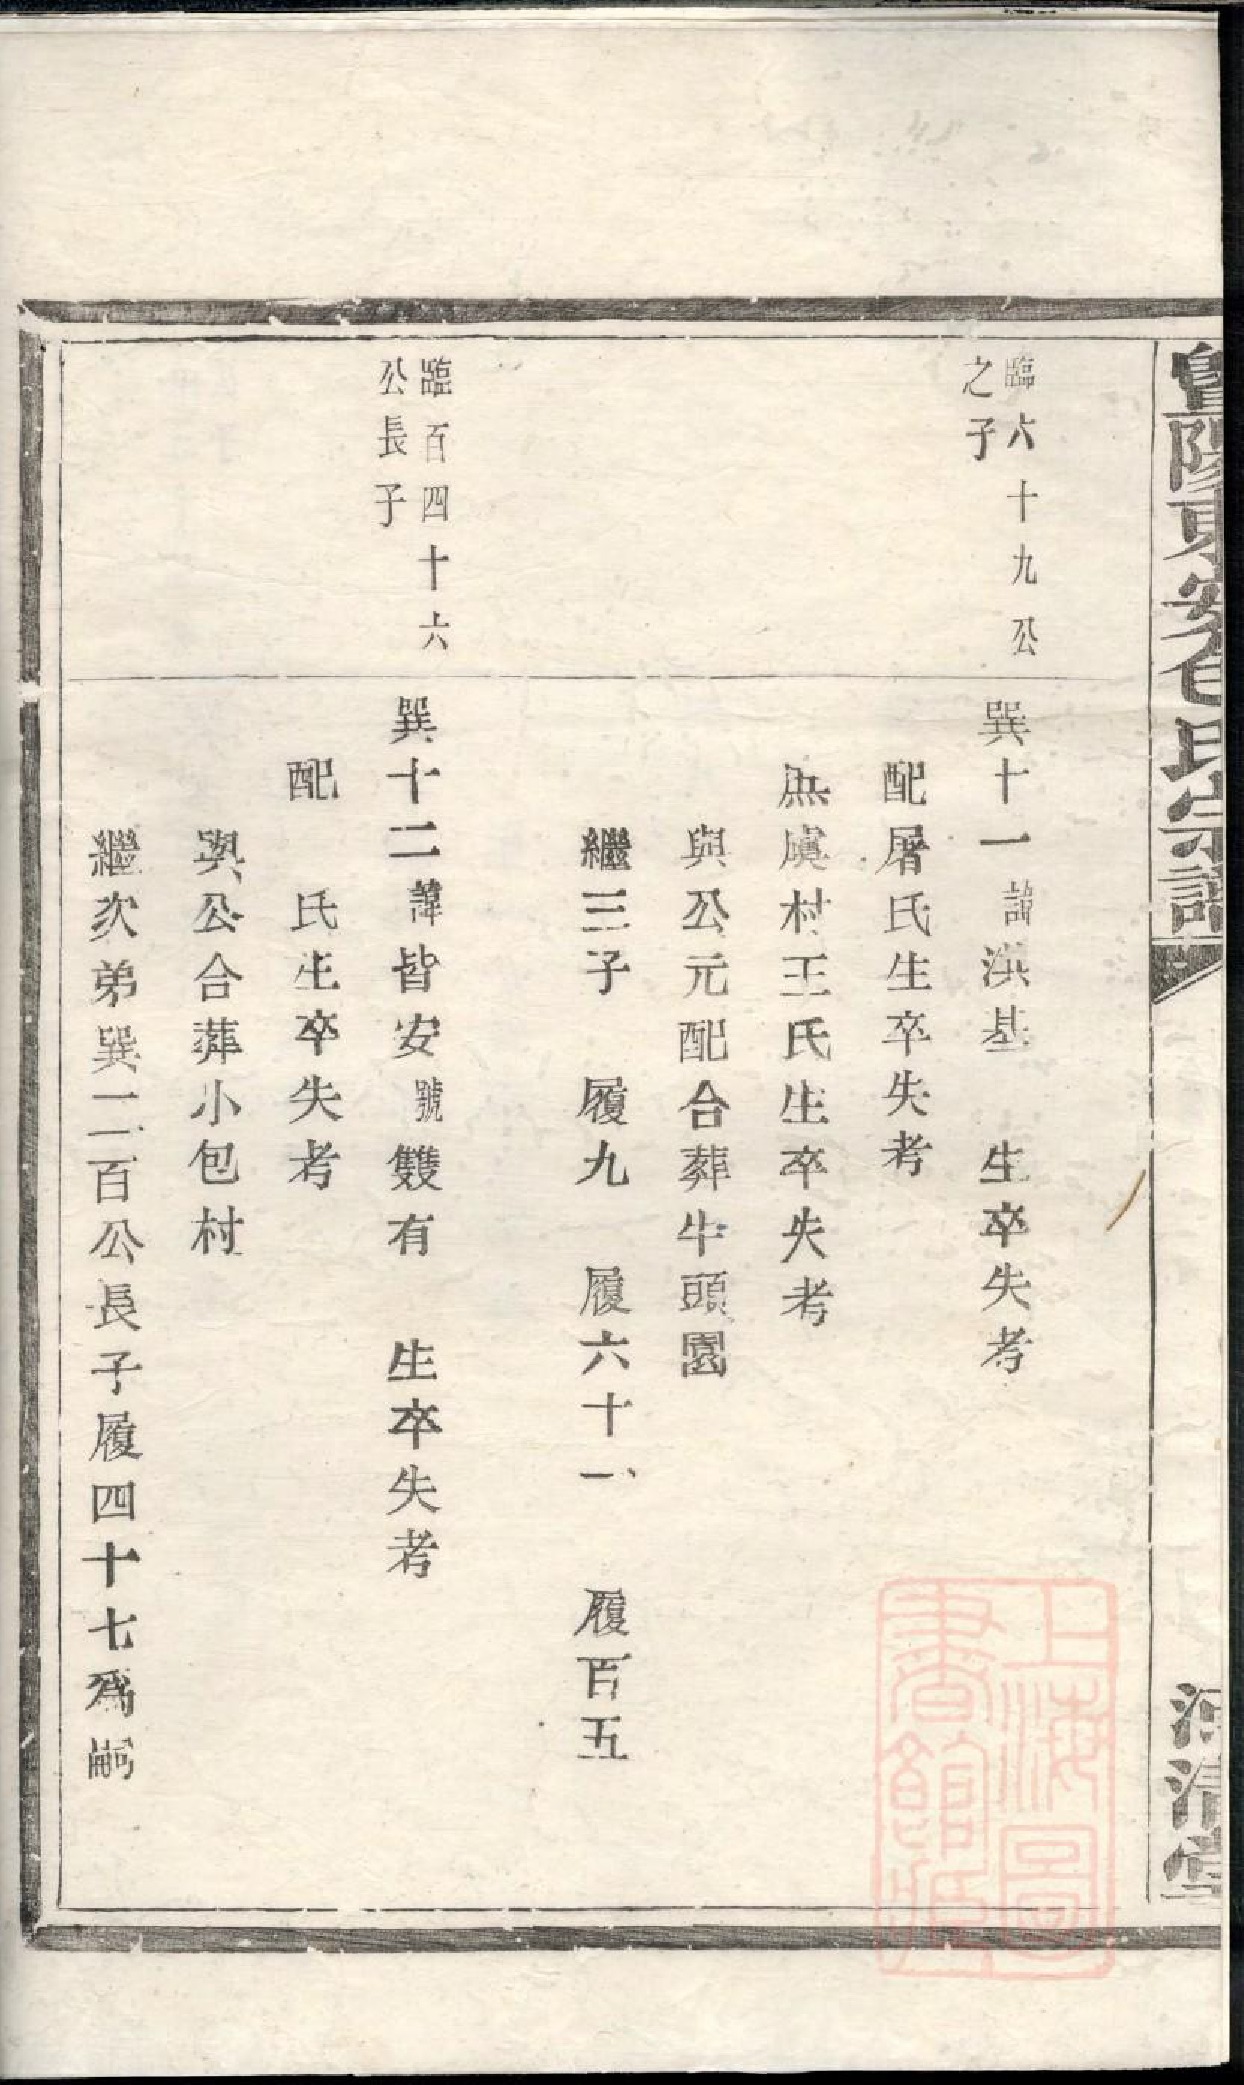 暨陽東安包氏宗譜
河清堂
臨六十九公
之子
巽十一諱洪基 生卒失考
配屠氏生卒失考
無虞村王氏生卒失考
與公元配合葬牛頭園
繼三子 履九 履六十一 履百五
臨百四十六
公長子
巽十二諱皆安號雙有 生卒失考
配 氏生卒失考
與公合葬小包村
繼次弟巽二百公長子履四十七為嗣
上海圖
書館藏